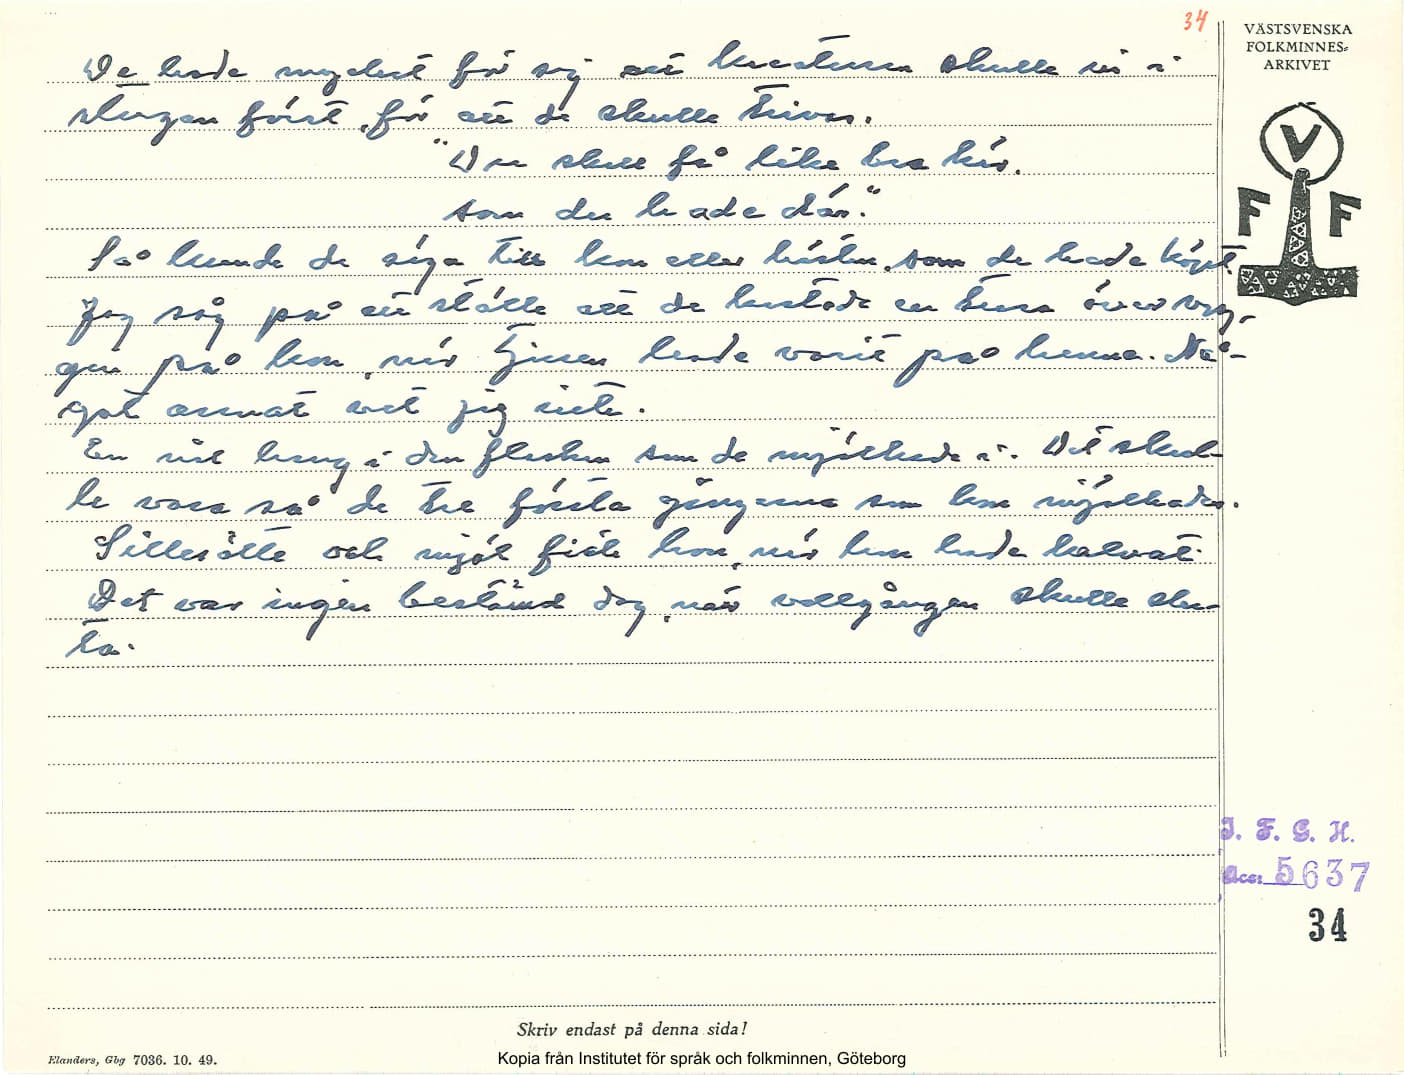 34
VÄSTSVENSKA
FOLKMINNES-
ARKIVET
V
F F
De hade mycket för sig att kreaturen skulle in i
stugan först, för att de skulle trivas.
"Du skall få lika bra här,
som du hade där."
Så kunde de säga till kon eller hästen, som de hade köpt.
Jag såg på ett ställe att de kastade en över ryg-
gen på kon, när tjuren hade varit på henne. Nå-
got annat vet jag inte.
En nål hang i den flaskan som de mjölkade i. Det skul-
le vara så de tre första gångerna som hon mjölkades.
Sillesötte och mjöl fick hon, när hon hade kalvat.
Det var ingen bestämd dag, när vallgången skulle slu-
ta.
I. F. G. H.
Acc: 5637
34
Skriv endast på denna sida!
Elanders, Gbg 7036. 10. 49.
Kopia från Institutet för språk och folkminnen, Göteborg